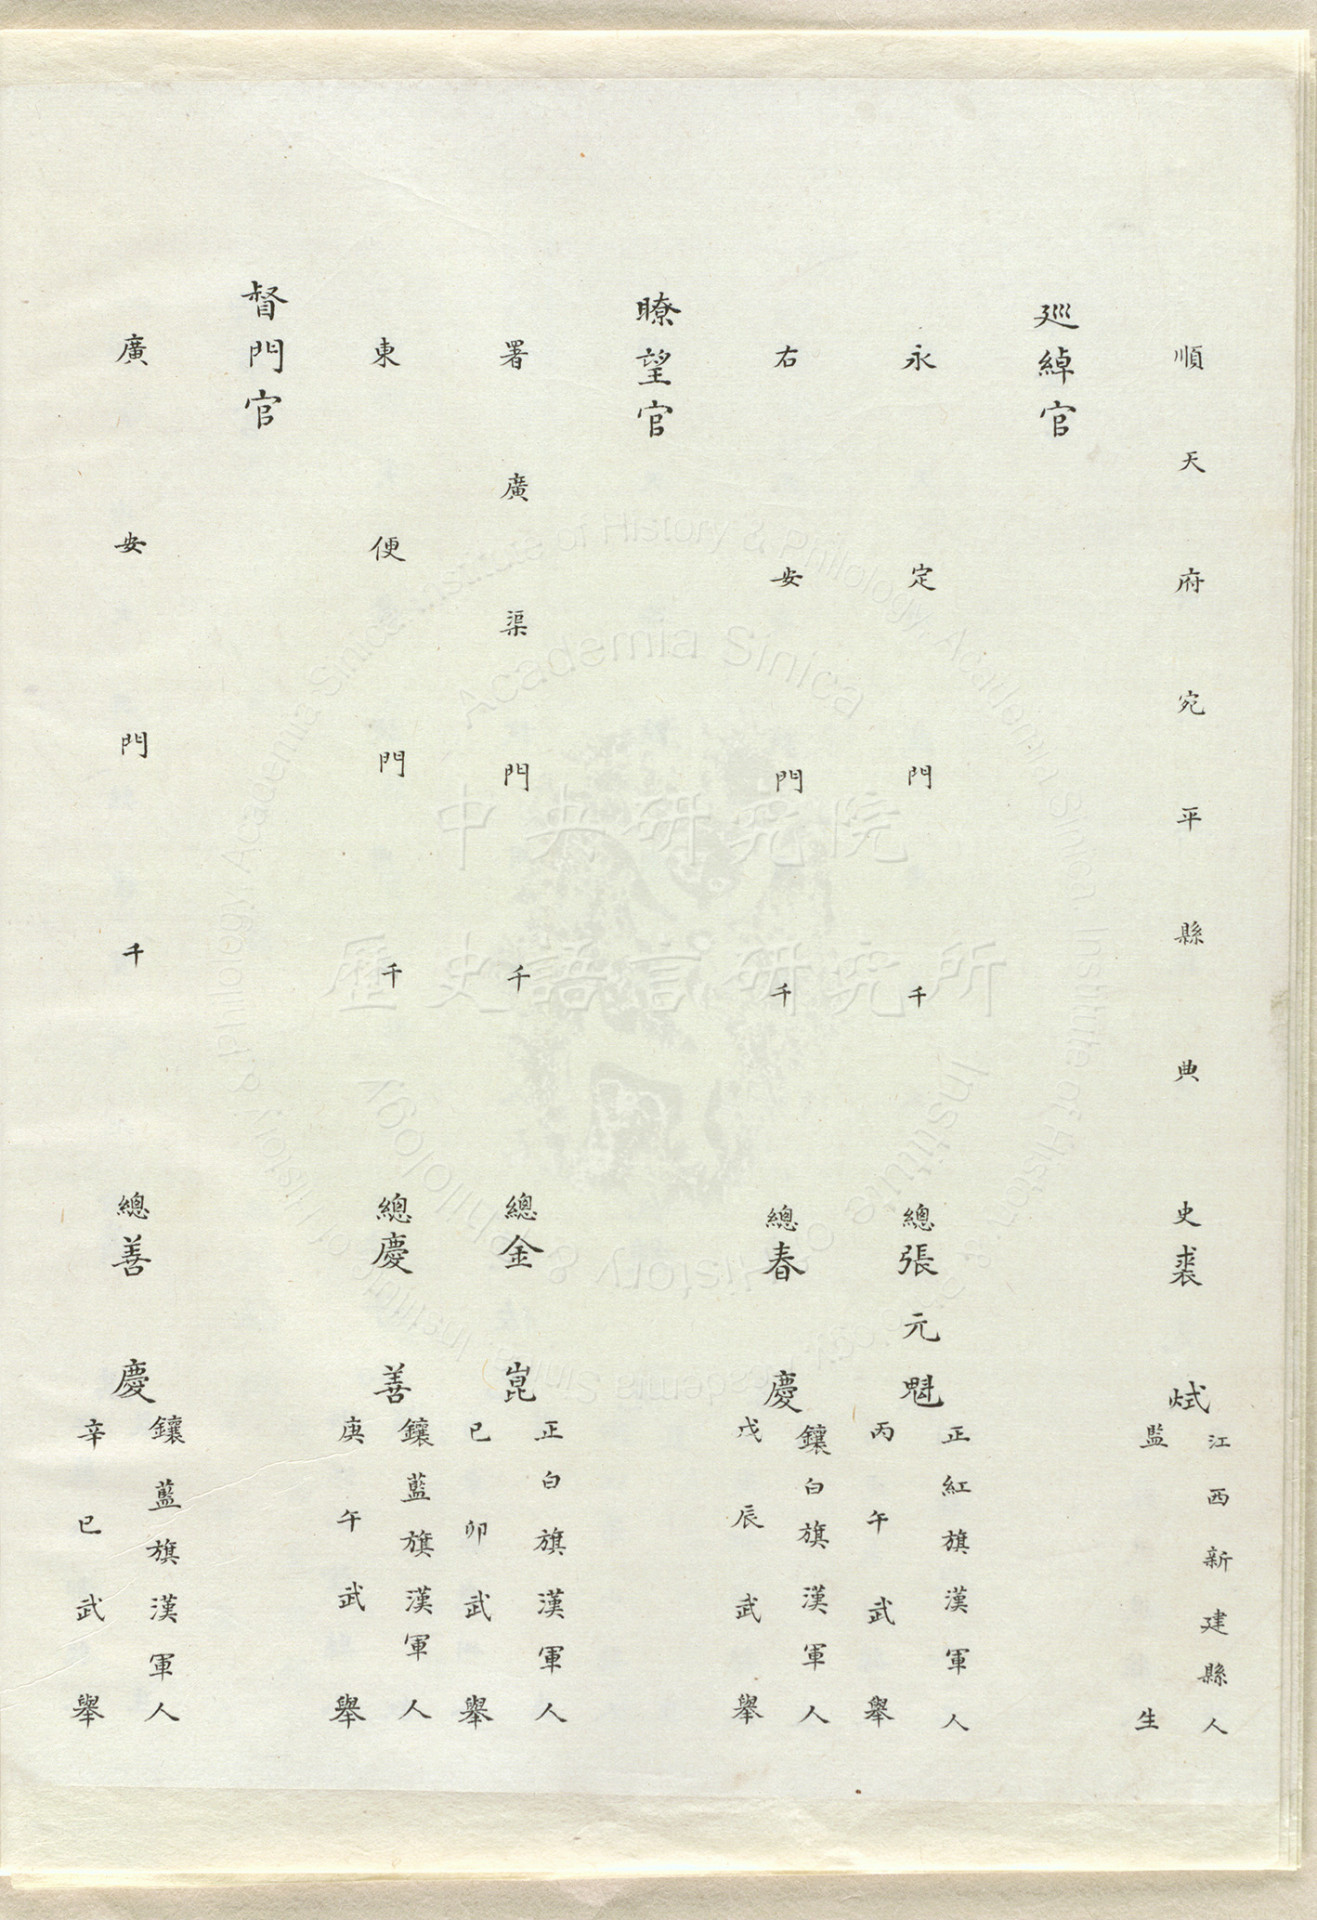 順天府宛平縣典史裘烒
江西新建縣人
監生
巡綽官
永定門千總張元魁
正紅旗漢軍人
丙午武舉
右安門千總春慶
鑲白旗漢軍人
戊辰武舉
瞭望官
署廣渠門千總金崑
正白旗漢軍人
已卯武舉
東便門千總慶善
鑲藍旗漢軍人
庚午武舉
督門官
廣安門千總善慶
鑲藍旗漢軍人
辛巳武舉
中央研究院
歷史語言研究所
Academia Sinica
Institute of History & Philology
Institute of History & Philology, Academia Sinica